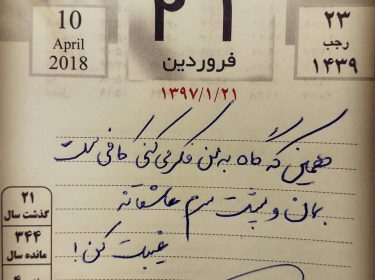 10
April
2018
۲۱
فروردین
۱۳۹۷/۱/۲۱
۲۳
رجب
۱۴۳۹
همین که گاه به من فکر می کنی کافی است
بمان و پشت سرم عاشقانه
غیبت کن!
۲۱
گذشت سال
۳۴۴
مانده سال